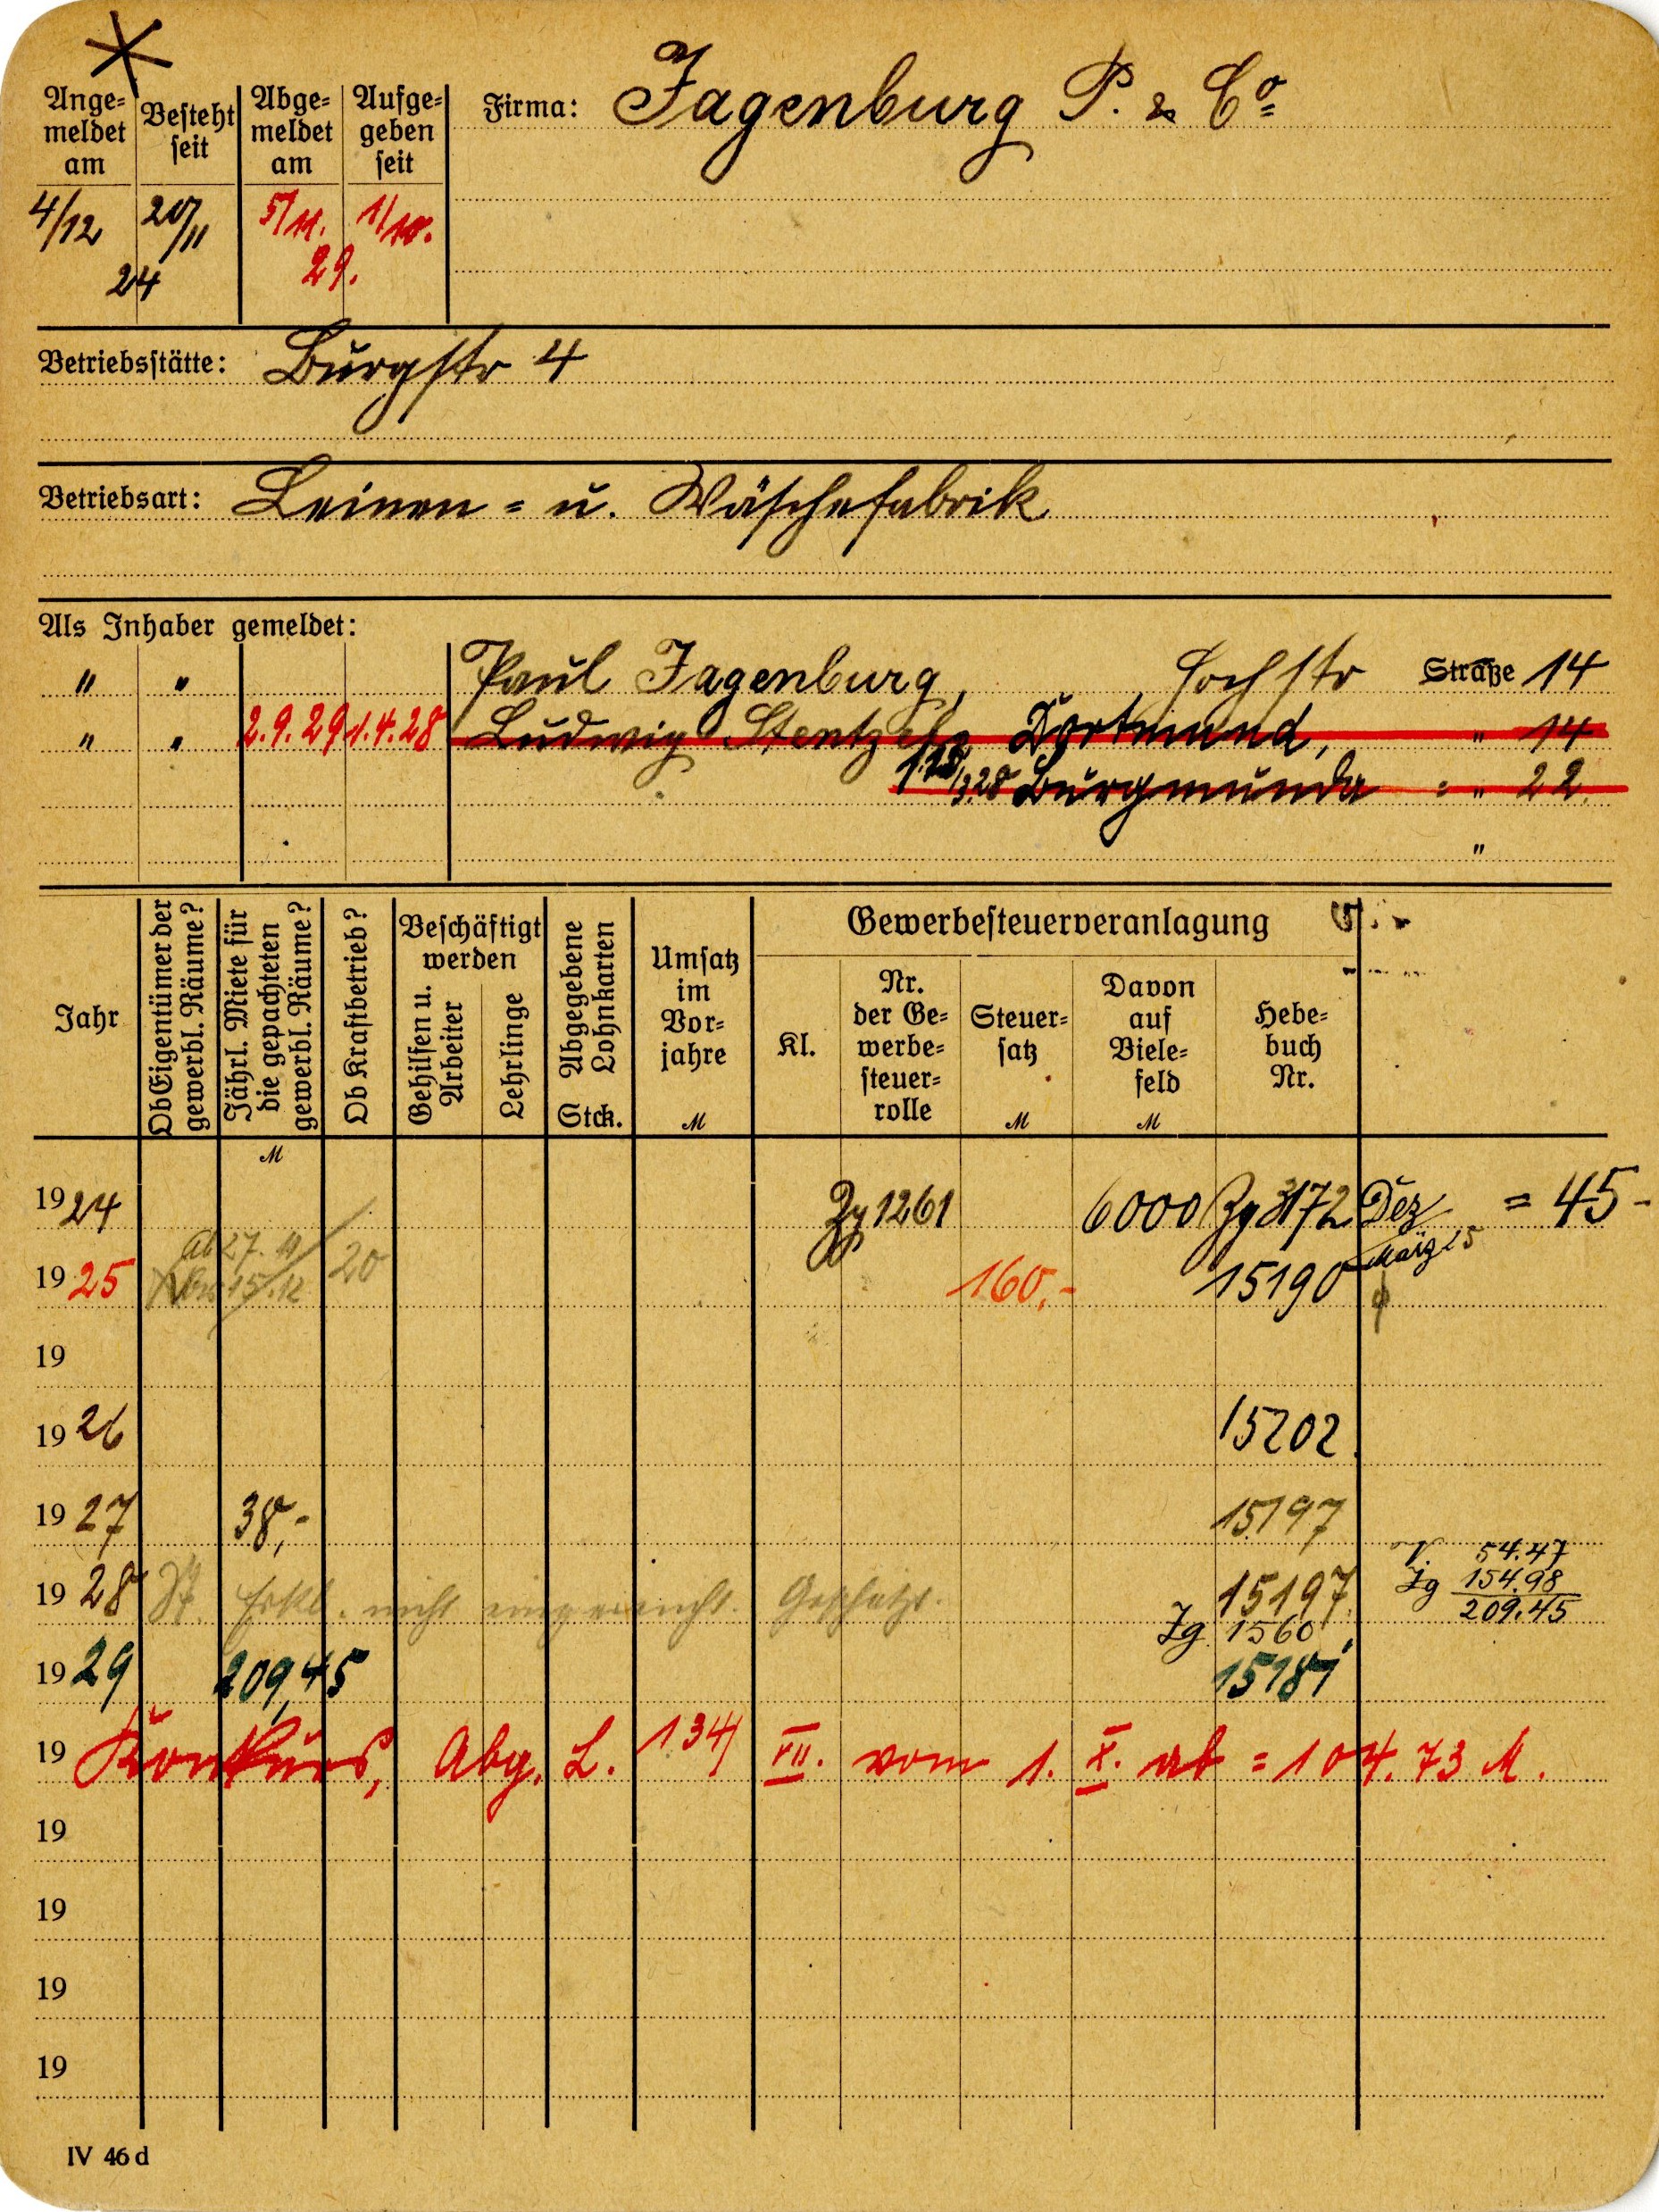 Ange=
meldet
am
Besteht
seit
Abge=
meldet
am
Aufge=
geben
seit
Firma: Fagenburg P. & Co
4/12 20/11 5/11. 1/10.
24 29.
Betriebsstätte: Burgstr 4
Betriebsart: Leinen = u. Wäschefabrik
Als Inhaber gemeldet:
" " Paul Fagenburg, Hochstr Straße 14
" " 2.9.29 1.4.28 Ludwig Stentzel, Dortmund, " 14
Burgmunda = " 22.
"
Jahr
Ob Eigentümer der
gewerbl. Räume?
Jährl. Miete für
die gepachteten
gewerbl. Räume?
M
Ob Kraftbetrieb?
Beschäftigt
werden
Gehilfen u.
Arbeiter
Lehrlinge
Abgegebene
Lohnkarten
Stck.
Umsatz
im
Vor=
jahre
M
Gewerbesteuerveranlagung
Kl.
Nr.
der Ge=
werbe=
steuer=
rolle
Steuer=
satz
M
Davon
auf
Biele=
feld
M
Hebe=
buch
Nr.
1924 Zg 1261 6000 Zg 3172 Dez = 45-
März 25
ab 27. 20
1925 15/12 160,- 15190
19
1926 15202
1927 38,- 15197
V. 54.47
1928 St. Erkl. nicht eingereicht. Geschätzt. 15197 Zg 154.98
Zg 1560 209.45
1929 209,45 15181
19 Konkurs, Abg. L. 134/ VII. vom 1. X. ab = 104.73 M.
19
19
19
19
IV 46 d